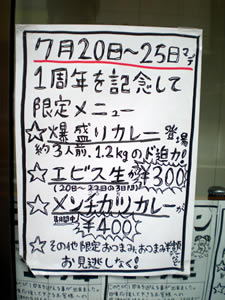 7月20日〜25日マデ
1周年を記念して
限定メニュー
☆爆盛りカレー登場
約3人前、1.2kgのド迫力!
☆エビス生が¥300
(20日〜22日の3日間)
☆メンチカツカレーが
期間中¥400
☆その他限定おつまみ、おつまみ半額
お見逃しなく!